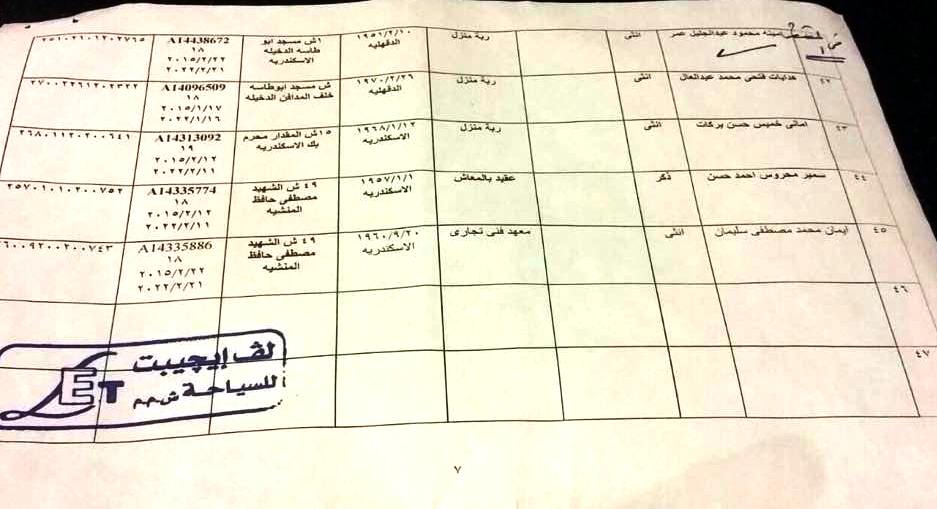 امينه محمود عبدالجليل عمر
انثى
ربة منزل
١٩٥١/٢/١٠
الدقهليه
١ش مسجد ابو
طاسه الدخيله
الاسكندريه
A14438672
١٨
٢٠١٥/٢/٢٢
٢٠٢٢/٢/٢١
٢٥١٠٢١٠١٢٠٢٧٦٥
٤٢
هدايات فتحى محمد عبدالعال
انثى
ربة منزل
١٩٧٠/٢/٢٦
الدقهليه
ش مسجد ابوطاسه
خلف المدافن الدخيله
A14096509
١٨
٢٠١٥/١/١٧
٢٠٢٢/١/١٦
٢٧٠٠٢٢٦١٢٠٢٣٢٢
٤٣
امانى خميس حسن بركات
انثى
ربة منزل
١٩٦٨/١/١٢
الاسكندريه
١٥ش المقدار محرم
بك الاسكندريه
A14313092
١٩
٢٠١٥/٢/١٢
٢٠٢٢/٢/١١
٢٦٨٠١١٢٠٢٠٠٦٤١
٤٤
سمير محروس احمد حسن
ذكر
عقيد بالمعاش
١٩٥٧/١/١
الاسكندريه
٤٩ ش الشهيد
مصطفى حافظ
المنشيه
A14335774
١٨
٢٠١٥/٢/١٢
٢٠٢٢/٢/١١
٢٥٧٠١٠١٠٢٠٠٧٥٢
٤٥
ايمان محمد مصطفى سليمان
انثى
معهد فنى تجارى
١٩٦٠/٩/٢٠
الاسكندريه
٤٩ ش الشهيد
مصطفى حافظ
المنشيه
A14335886
١٨
٢٠١٥/٢/٢٢
٢٠٢٢/٢/٢١
٦٠٠٩٢٠٠٢٠٠٧٤٣
٤٦
٤٧
لف إيجيبت
للسياحة ش.م.م
ET
٧